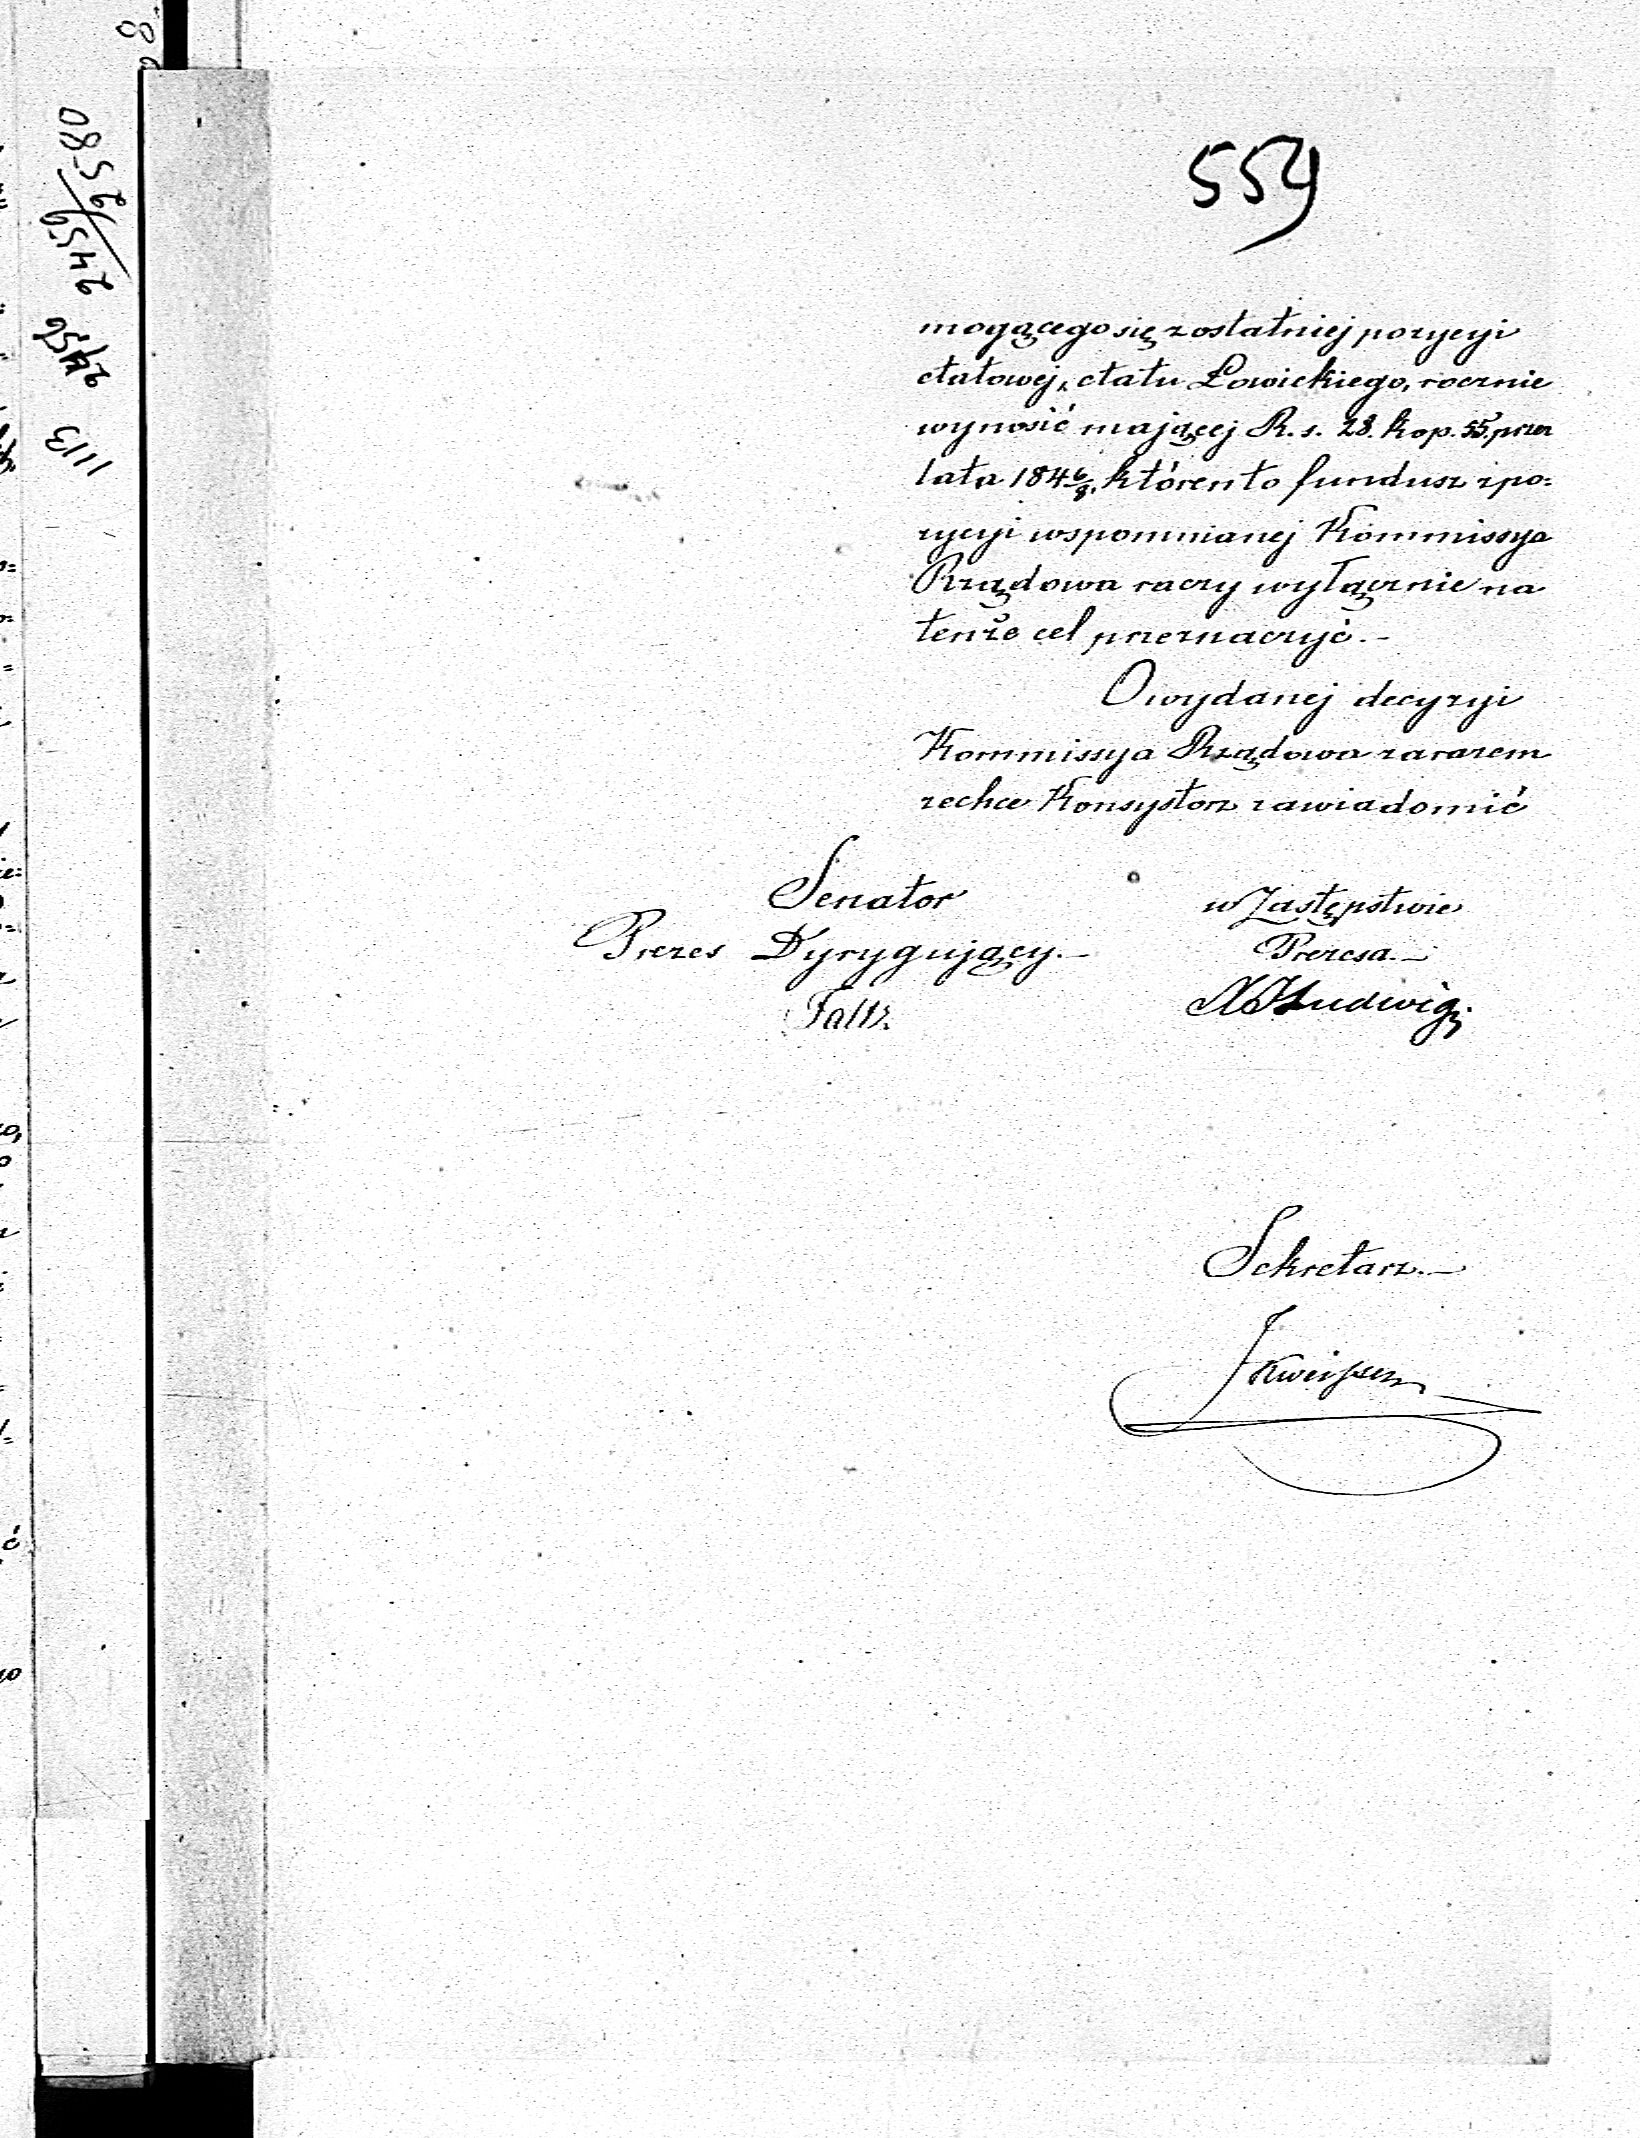 559
mogącego się z ostatniej pozycyi
etatowej, etatu Łowickiego, rocznie
wynosić mającej R. s. 28. kop. 55. przez
lata 184 6/8, którento fundusz z po=
zycyi wspomnianej Kommissya
Rządowa raczy wyłącznie na
tenże cel przeznaczyć. -
O wydanej decyzyi
Kommissya Rządowa zarazem
zechce Konsystorz zawiadomić
Senator
Prezes Dyrygujący. -
Faltz.
w Zastępstwie
Prezesa. -
Ludwig
Sekretarz. -
9580
2456
2456
1113